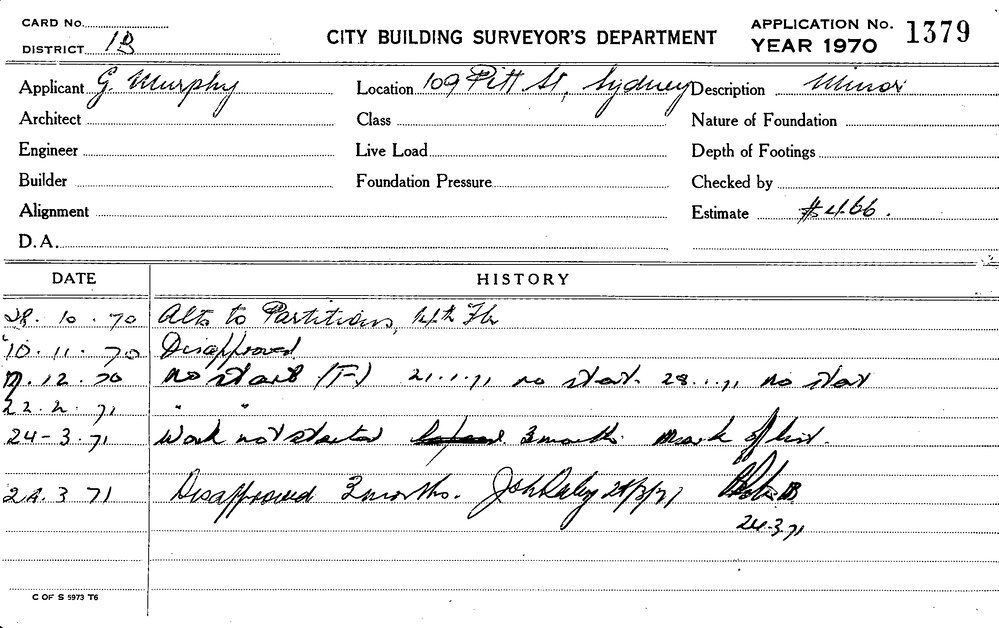 CARD No.
DISTRICT 1B
CITY BUILDING SURVEYOR'S DEPARTMENT
APPLICATION No. 1379
YEAR 1970
Applicant G. Murphy
Location 109 Pitt St, Sydney
Description Minor
Architect
Class
Nature of Foundation
Engineer
Live Load
Depth of Footings
Builder
Foundation Pressure
Checked by
Alignment
Estimate $466.
D.A.
DATE HISTORY
28.10.70 Alts to Partitions, 4th Flr
10.11.70 Disapproved
12.70 no start (T-) 21.1.71 no start. 28.1.71 no start
22.2.71 " "
24-3.71 Work not started 3 months. Mark off list.
24.3.71 Disapproved 3 months. 24/3/71
24.3.71
C OF S 5973 T6